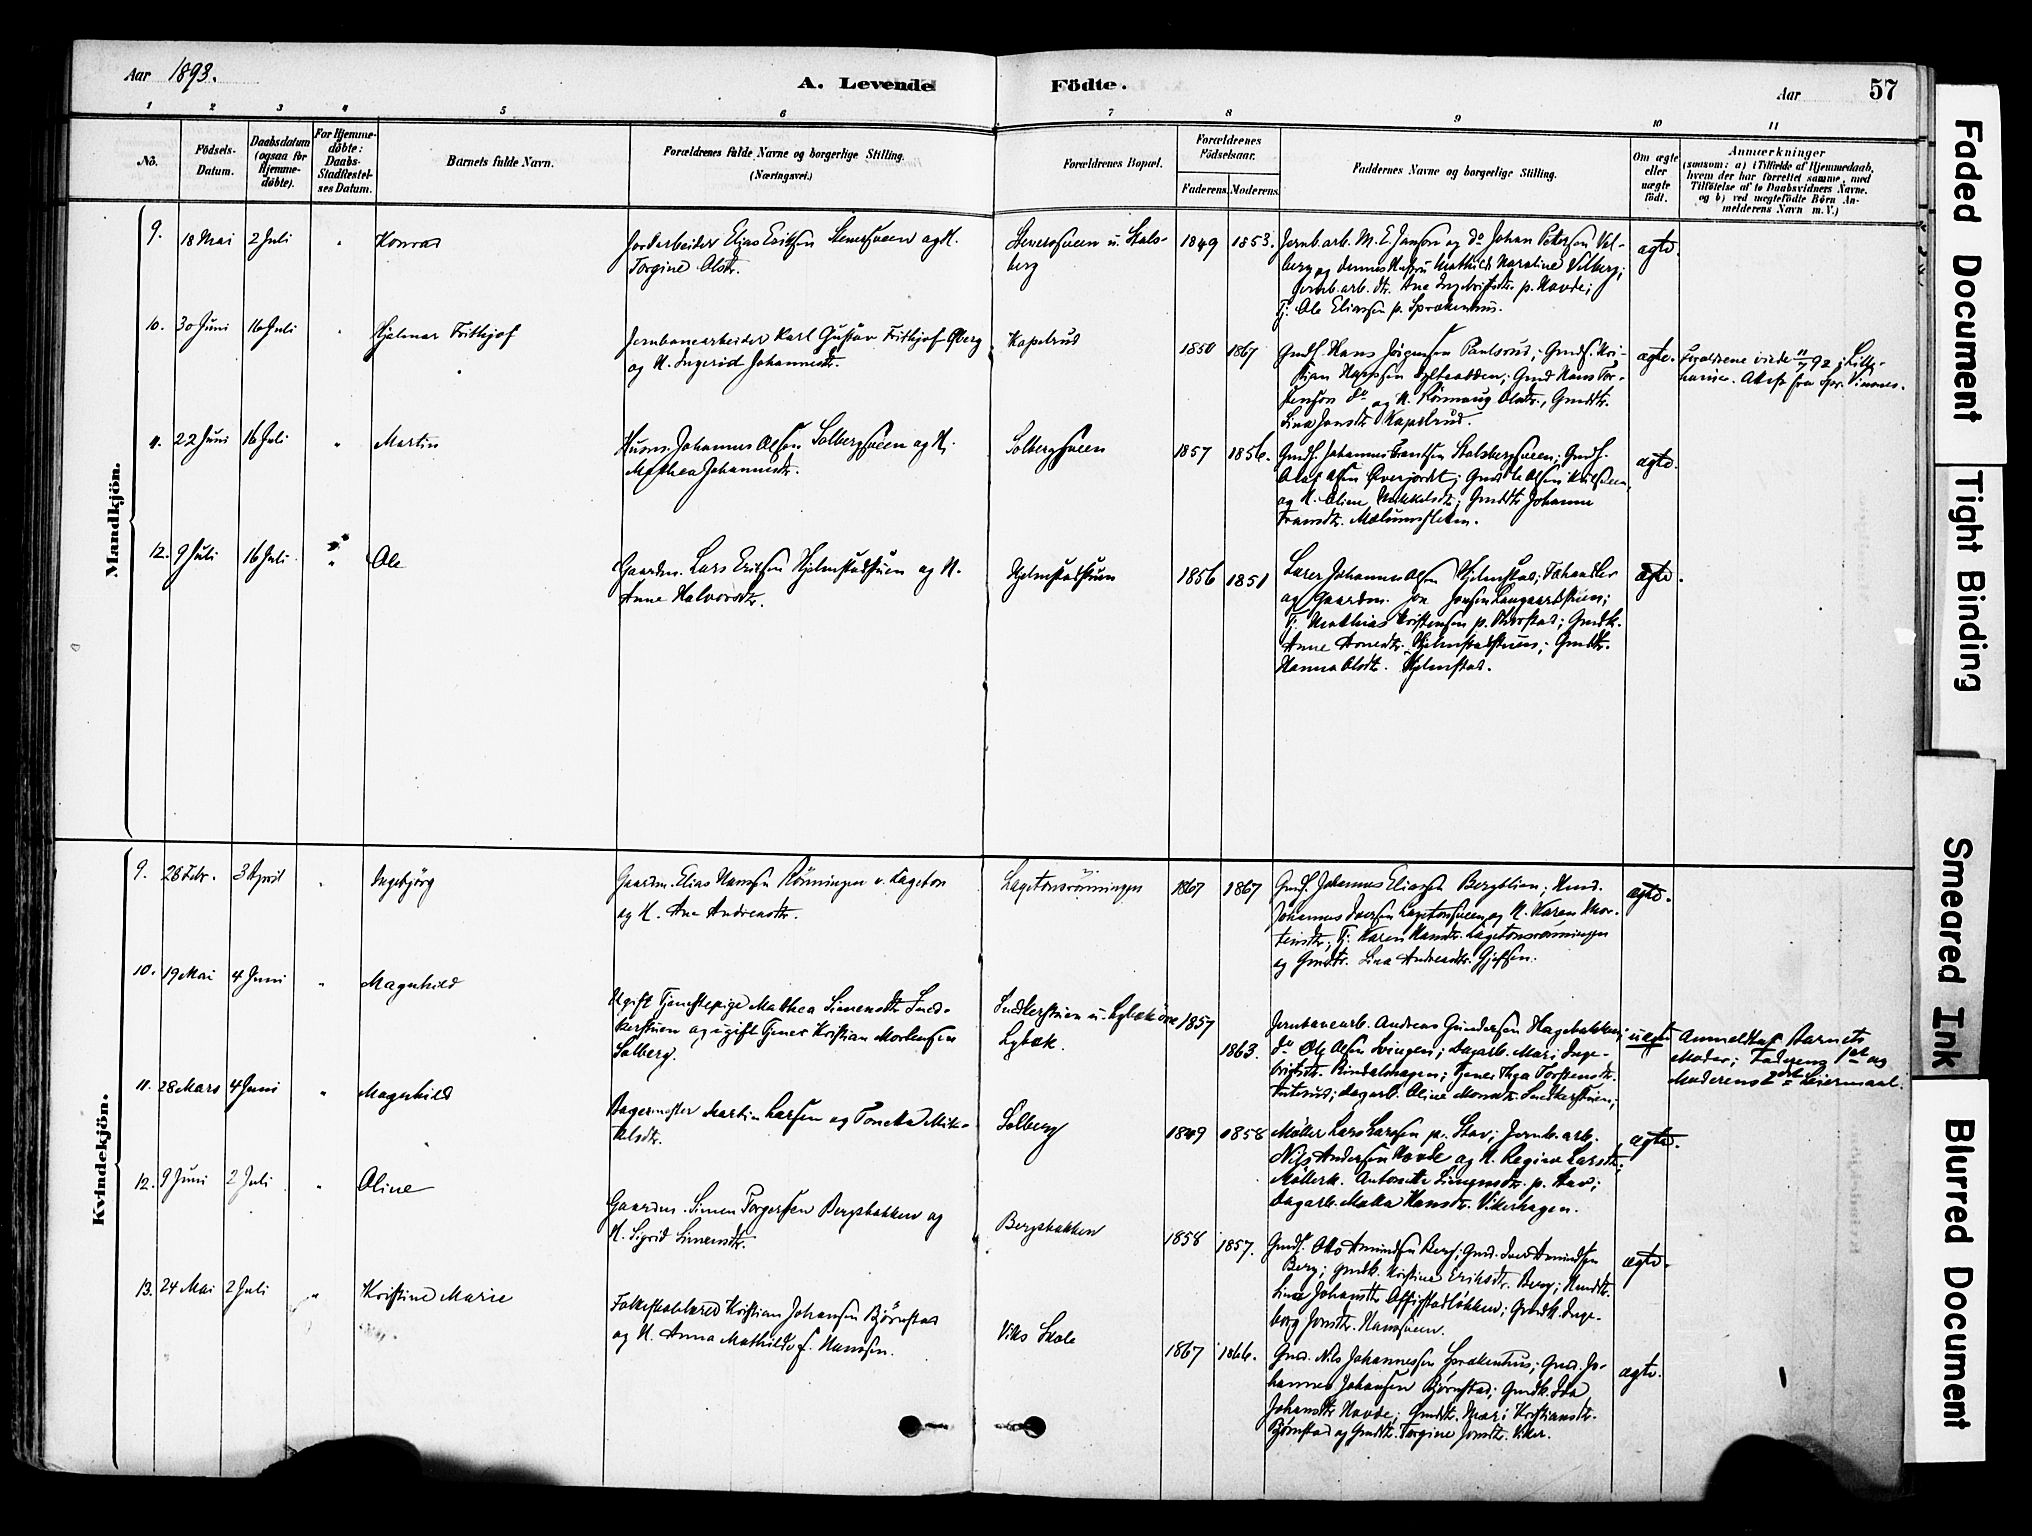 Aar 1893.
A. Levende Födte.
Aar
57
1 2 3 4 5 6 7 8 9 10 11
No.
Födsels-Datum.
Daabsdatum (ogsaa for Hjemme-döbte).
For Hjemme-döbte: Daabs-Stadfæstel-ses Datum.
Barnets fulde Navn.
Forældrenes fulde Navne og borgerlige Stilling.
(Næringsvei.)
Forældrenes Bopæl.
Forældrenes Födselsaar.
Faderens. Moderens.
Faddernes Navne og borgerlige Stilling.
Om ægte eller uægte födt.
Anmærkninger
(saasom: a) i Tilfælde af Hjemmedaab,
hvem der har forrettet samme, med
Tilföielse af to Daabsvidners Navne.
og b) ved uægtefödte Börn An-
melderens Navn m. V.)
Mandkjön.
9. 18 Mai 2 Juli " Konrad
Jordarbeider Elias Eriksen Steversveen og H.
Torgine Olsdtr.
Steversveen u. Stals-
berg
1849 1853.
Jernb.arb. M. E. Jansen og do Johan Petersen Vel-
berg og dennes Hustru Mathilde Karoline Velberg;
p. Hovde;
Tj. Ole Eliassen p. Sprækenhus.
ægte.
10. 30 Juni 16 Juli " Hjalmar Frithjof
Jernbanearbeider Karl Gustav Frithjof Øberg
og H. Ingerid Johannesdtr.
Kapelrud
1850 1867
Gmdf. Hans Jørgensen Paulsrud; Gmdf. Kri-
stian Hanssen
og H. Rönnaug Olsdtr., Gmdtr.
Lina Jonsdtr. Kapelrud.
ægte.
Forældrene viede 11/7 92 i Lille-
hammer.
11. 22 Juni 16 Juli " Martin
Husm. Johannes Olsen Solbergsveen og H.
Mathea Johannesdtr.
Solbergsveen
1857 1856.
Gmdf. Johannes Frantsen Stalsbergsveen; Gmdf.
Olaf Olsen Øverjordet;
og H. Oline Mikkelsdtr; Gmdtr. Johanne
Fransdtr. Mælumsfleten.
ægte.
12. 9 Juli 16 Juli. " Ole
Gaardm. Lars Eriksen Hjelmstadstuen og H.
Anne Halvorsdtr.
Hjelmstadstuen
1856 1851
Lærer Johannes Olsen Hjelmstad; Fohandler
og Gaardm. Jon Jonsen Laugaardstuen;
Tj. Mathias Kristensen p. ; Gmdk.
Anne Arnesdtr. Hjelmstadstuen; Gmdtr.
Hanna Olsdtr. Hjelmstad.
ægte.
Kvindekjön.
9. 28 Febr. 3 April " Ingebjörg
Gaardm. Elias Hanssen Rönningen u. Lageton
og H. Ane Andreasdtr.
Lagetonsrönningen
1867 1867
Gmdf. Johannes Eliassen Bergslien; Hmd.
Johannes Iversen Lagetonsveen og H. Karen Mor-
tensdtr; Tj. Karen Hansdtr. Lagetonsrönningen
og Gmdtr. Lina Andreasdtr.
ægte.
10. 19 Mai 4 Juni " Magnhild
Ugift Tjenestepige Mathea Simensdtr.
og ugift Tjener Kristian Mortensen
Solberg.
Lybæk.
1857
1863.
Jernbanearb. Andreas Gundersen Hagebakken;
do Ole Olsen Svingen; Dagarb. Mari Inge-
brigtsdtr.
uægte
Anmeldt af Barnets
Moder; Faderens 1ste og
Moderens 2det Leiermaal.
11. 28 Mars 4 Juni " Magnhild
Bagermester Martin Larsen og Toneta Mik-
kelsdtr.
Solberg
1849 1858
Møller Lars Larsen p. Stav; Jernb.arb.
Nils Andersen Hovde og H. Regine Larsdtr;
Møllerk. Antonette p. Stav;
Dagarb. Hansdtr. Vikerhagen.
ægte.
12. 9 Juni 2 Juli " Oline
Gaardm. Simen Torgersen Bergsbakken og
H. Sigrid Simensdtr.
Bergsbakken
1858 1857.
Gmdf. Otto Amundsen Berg; Gmd. Iver Amundsen
Berg; Gmdk. Kristine Eriksdtr. Berg;
Lina Johansdtr. ; Gmdk. Inge-
borg Jonsdtr. Hanssveen.
ægte.
13. 24 Mai 2 Juli " Kristine Marie
Folkeskolelærer Kristian Johansen Björnstad
og H. Anna Mathilde f. Hanssen.
Viks Skole
1867 1866.
Gmd. Nils Johannessen Sprækenhus; Gmd. Jo-
hannes Johansen Björnstad; Gmdk. Ida
Johansdtr. Hovde; Gmdtr. Mari Kristiansdtr.
Björnstad og Gmdtr. Torgine Jonsdtr. Viker.
ægte.
Faded Document
Tight Binding
Smeared Ink
Blurred Document